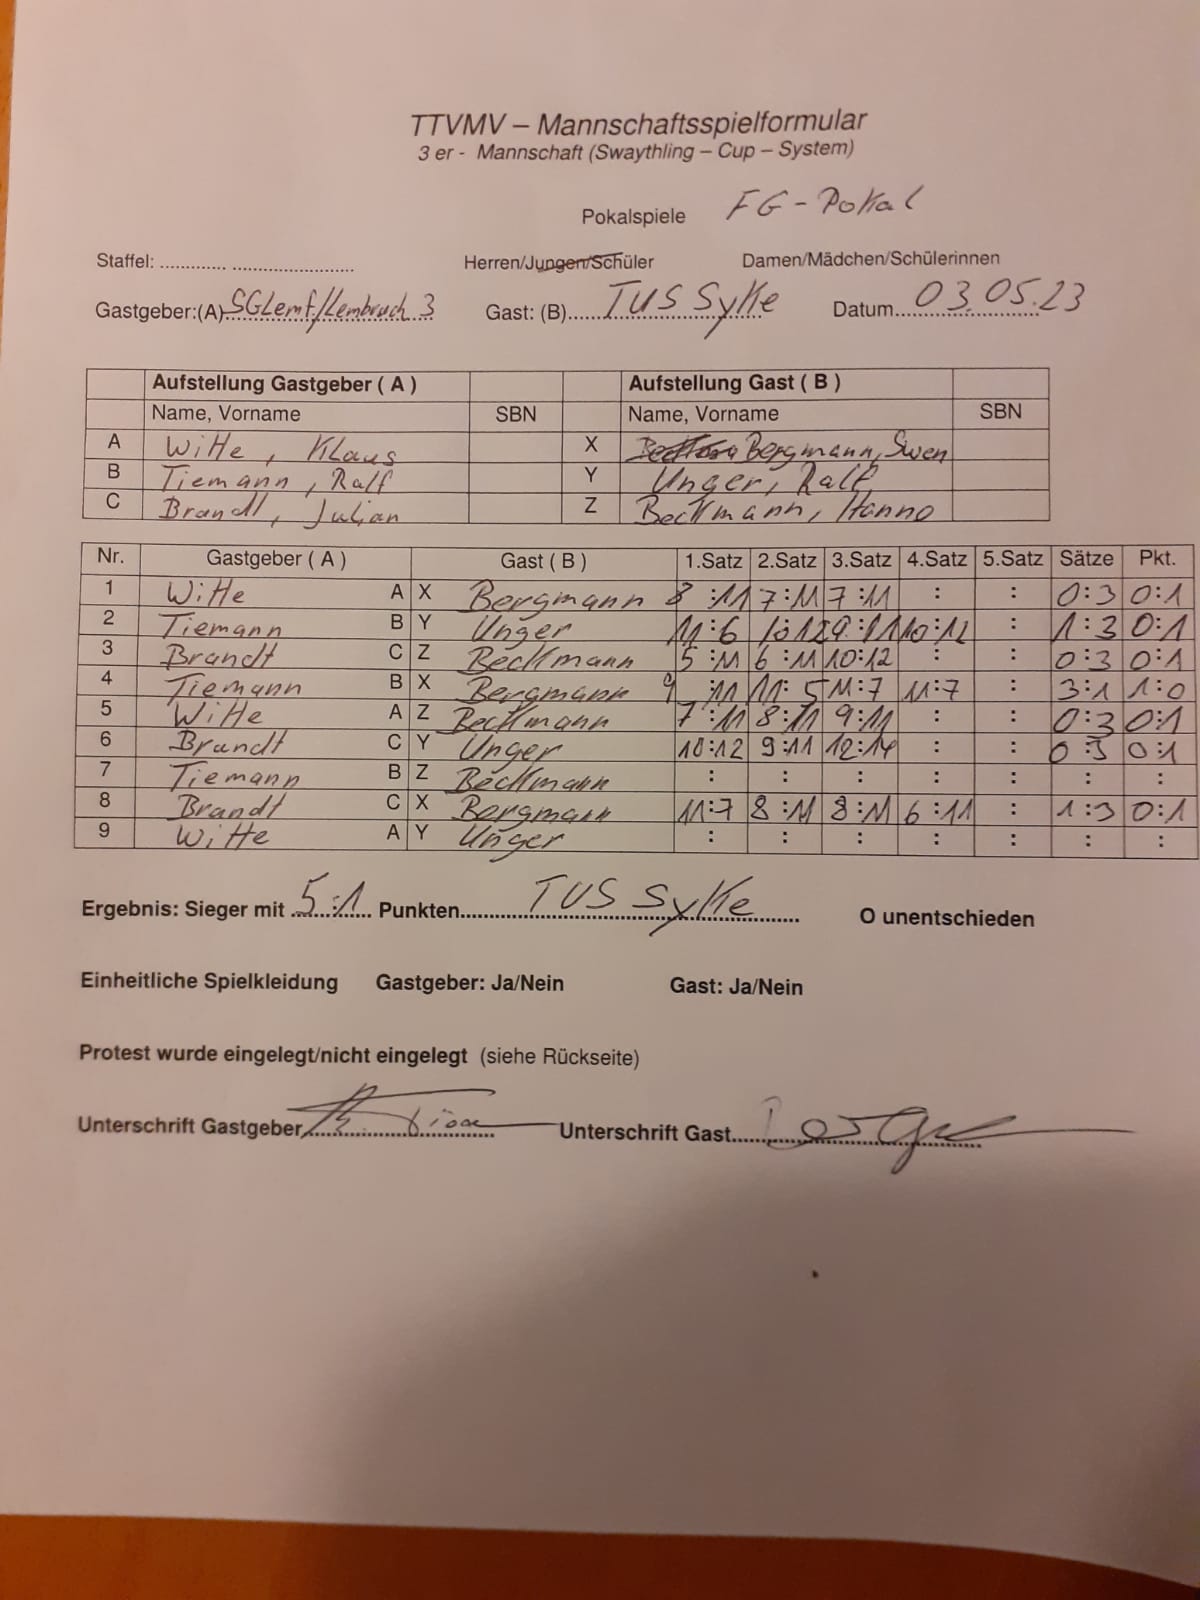 TTVMV – Mannschaftsspielformular
3 er - Mannschaft (Swaythling – Cup – System)
Pokalspiele FG-Pokal
Staffel: ............ ..................... Herren/Jungen/Schüler Damen/Mädchen/Schülerinnen
Gastgeber:(A) SG Lemf/Lembruch 3 Gast: (B)..... TUS Syke Datum 03.05.23
Aufstellung Gastgeber ( A ) Aufstellung Gast ( B )
Name, Vorname SBN Name, Vorname SBN
A Witte, Klaus X Bergmann, Swen
B Tiemann, Ralf Y Unger, Ralf
C Brandt, Julian Z Beckmann, Hanno
Nr. Gastgeber ( A ) Gast ( B ) 1.Satz 2.Satz 3.Satz 4.Satz 5.Satz Sätze Pkt.
1 Witte A X Bergmann 8:11 7:11 7:11 : : 0:3 0:1
2 Tiemann B Y Unger 11:6 10:12 9:11 10:12 : 1:3 0:1
3 Brandt C Z Beckmann 5:11 6:11 10:12 : : 0:3 0:1
4 Tiemann B X Bergmann 9:11 11:5 11:7 11:7 : 3:1 1:0
5 Witte A Z Beckmann 7:11 8:11 9:11 : : 0:3 0:1
6 Brandt C Y Unger 10:12 9:11 12:14 : : 0:3 0:1
7 Tiemann B Z Beckmann : : : : : : :
8 Brandt C X Bergmann 11:7 8:11 8:11 6:11 : 1:3 0:1
9 Witte A Y Unger : : : : : : :
Ergebnis: Sieger mit 5:1 Punkten TUS Syke O unentschieden
Einheitliche Spielkleidung Gastgeber: Ja/Nein Gast: Ja/Nein
Protest wurde eingelegt/nicht eingelegt (siehe Rückseite)
Unterschrift Gastgeber Unterschrift Gast